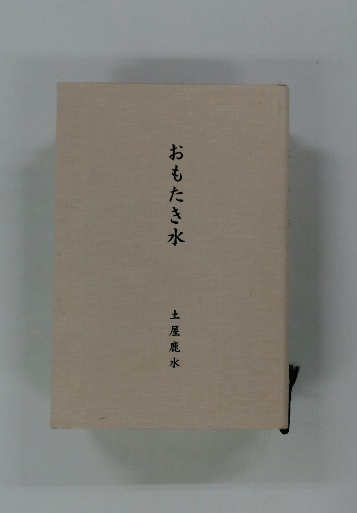 おもたき水
土屋鹿水